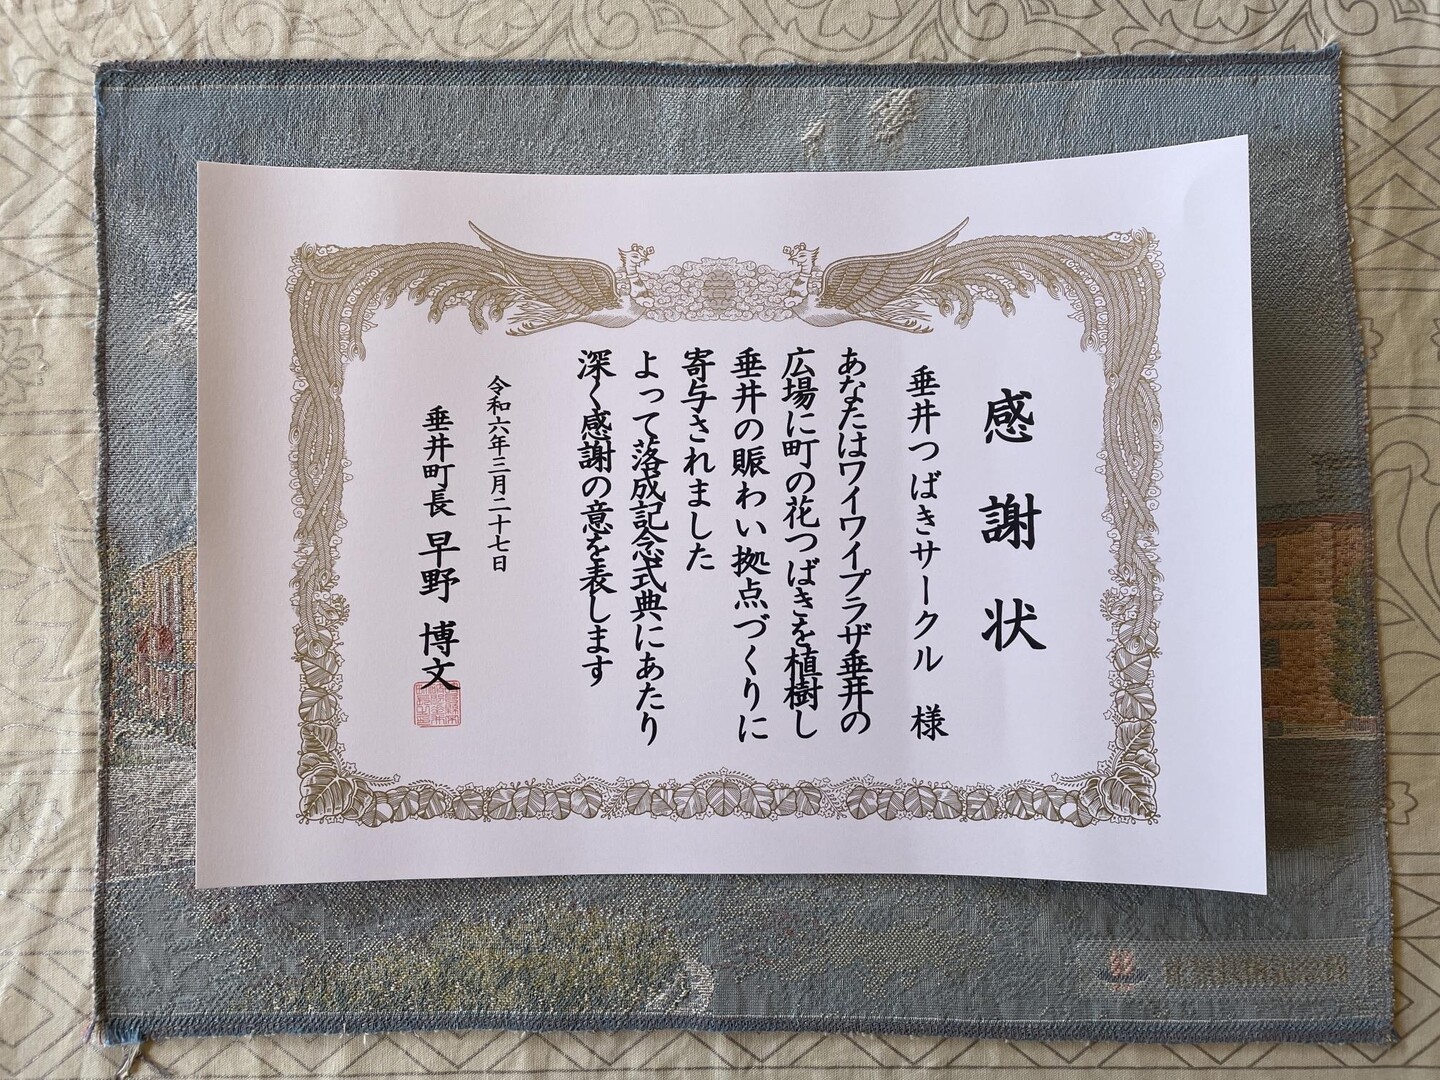 感謝状
垂井つばきサークル 様
あなたはワイワイプラザ垂井の
広場に町の花つばきを植樹し
垂井の賑わい拠点づくりに
寄与されました
よって落成記念式典にあたり
深く感謝の意を表します
令和六年三月二十七日
垂井町長 早野 博文